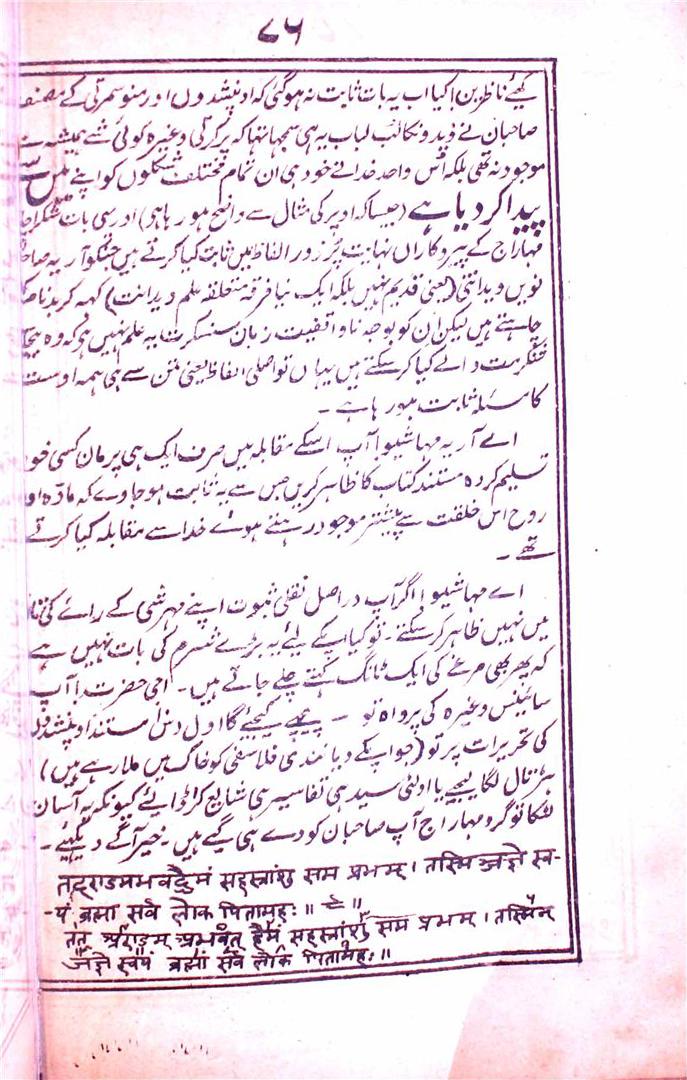 ۷۶
کہئے ناظرین! کیا اب یہ بات ثابت نہ ہوگئی کہ اوپنشدوں اور منوسمرتی کے مصنف
صاحبان نے وید ونکا لب لباب یہ ہی سمجہا تہا کہ پرکرتی وغیرہ کوئی شے ہمیشہ
موجود نہ تھی بلکہ اُس واحد خدا نے خود ہی ان تمام مختلف شکلوں کو اپنے میں سے
پیدا کر دیا ہے (جیسا کہ اوپر کی مثال سے واضح ہو رہا ہی) اور سی بات
مہاراج کے پیروکاراں نہایت پُرزور الفاظ میں ثابت کیا کرتے ہیں جنکو آریہ
نویں ویدانتی (یعنی قدیم نہیں بلکہ ایک نیا فرقہ متعلقہ علم ویدانت) کہہ کر
چاہتے ہیں لیکن اِن کو بوجہ ناواقفیت زبان سنسکرت یہ علم نہیں ہی کہ وہ
شنکرمت والے کیا کر سکتے ہیں یہاں تو اصلی الفاظ یعنی متن سے ہی ہمہ اوست
کا مسئلہ ثابت ہو رہا ہے ۔
اے آریہ مہاشیو! آپ اسکے مقابلہ میں صرف ایک ہی پرمان کسی
تسلیم کردہ مستند کتاب کا ظاہر کریں جس سے یہ ثابت ہو جاوے کہ مادّہ
روح اس خلقت سے پیشتر موجود رہتے ہوئے خدا سے مقابلہ کیا کرتے
تھے ۔
اے مہاشیو! اگر آپ دراصل نقلی ثبوت اپنے مہرشی کے رائے کی
میں نہیں ظاہر کر سکتے ۔ تو کیا آپکے لئے یہ بڑے شرم کی بات نہیں ہے
کہ پھر بھی مرغے کی ایک ٹانگ کہتے چلے جاتے ہیں ۔ اجی حضرت! آپ
سائینس وغیرہ کی پرواہ تو ۔ پیچھے کیجئے گا اول دس مستند اوپنشدوں
کی تحریرات پر تو (جو آپکے دیانندی فلاسفی کو خاک میں ملا رہے ہیں)
ہڑتال لگا لیجے یا اولٹی سیدھی تفاسیر ہی شایع کروائیے کیونکہ یہ آسان
لٹکا تو گرو مہاراج آپ صاحبان کو دے ہی گیے ہیں ۔ خیر آگے دیکہیئے ۔
तदण्डमभवद्धैमं सहस्त्रांशु सम प्रभम् । तस्मि ञ्जज्ञे स्व-
-यं ब्रह्मा सर्व लोक पितामहः ॥ ९ ॥
तत् अण्डम् अभवत् हैमं सहस्त्रांशु सम प्रभम् । तस्मिन्
जज्ञे स्वयं ब्रह्मा सर्व लोक पितामहः ॥